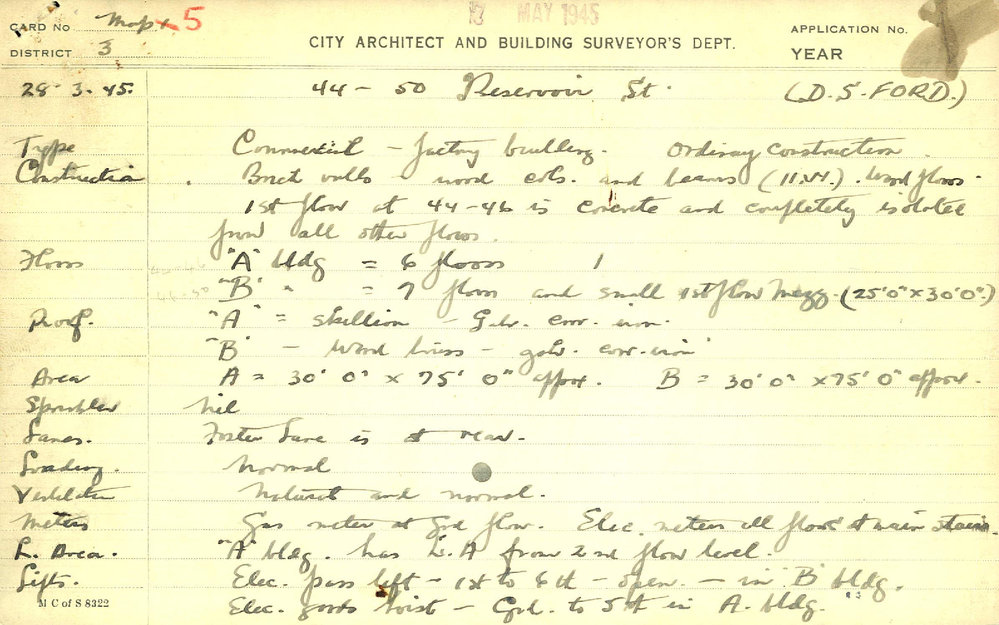 CARD No Map 1 x5
17 MAY 1945
APPLICATION No.
DISTRICT 3
CITY ARCHITECT AND BUILDING SURVEYOR'S DEPT.
YEAR
28.3.45. 44-50 Reservoir St. (D.S. FORD.)
Type Commercial - factory building. Ordinary construction.
Construction. Brick walls wood cols. and beams (H.W.). Wood floors.
1st floor at 44-46 is concrete and completely isolated
from all other floors.
Floors "A" bldg = 6 floors
"B" " = 7 floors and small 1st floor Mezz. (25'0"x30'0".)
Roof. "A" = skillion - Galv. corr. iron.
"B" - Wood truss - galv. corr. iron
Area A = 30' 0" x 75' 0" approx. B = 30' 0" x 75' 0" approx.
Sprinkler nil
Lanes. Foster Lane is at rear.
Loading. Normal
Ventilation Natural and normal.
Meters Gas meter at Grd floor. Elec. meters all floors at main stairs.
L. Area. "A" bldg. has L.A from 2nd floor level.
Lifts. Elec. pass lift - 1st to 6th - open. - in "B" bldg.
M C of S 8322
Elec. goods hoist - Grd. to 5th in A. bldg.